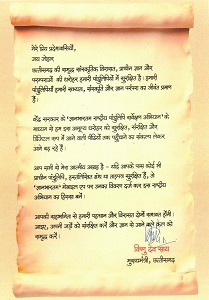 मेरे प्रिय प्रदेशवासियों,
जय जोहार
छत्तीसगढ़ की समृद्ध सांस्कृतिक विरासत, प्राचीन ज्ञान और
परम्पराओं की धरोहर हमारी पांडुलिपियों में सुरक्षित है। हमारी
पांडुलिपियाँ हमारी सभ्यता, संस्कृति और ज्ञान परंपरा का जीवंत प्रमाण
हैं।
केंद्र सरकार के 'ज्ञानभारतम राष्ट्रीय पांडुलिपि सर्वेक्षण अभियान' के
माध्यम से हम इस अमूल्य धरोहर को सुरक्षित, संरक्षित और
डिजिटल रूप में आने वाली पीढ़ियों तक पहुँचाने का संकल्प लेकर
आगे बढ़ रहे हैं।
आप सभी से मेरा आत्मीय आग्रह है - यदि आपके पास कोई भी
प्राचीन पांडुलिपि, हस्तलिखित ग्रंथ या ताड़पत्र सुरक्षित है, तो
'ज्ञानभारतम' मोबाइल एप पर उनका विवरण दर्ज कर इस राष्ट्रीय
अभियान का हिस्सा बनें।
आपकी सहभागिता से हमारी पहचान और विरासत दोनों सशक्त होंगी।
आइए, अपनी जड़ों को संरक्षित करें और ज्ञान से आने वाले कल को
समृद्ध करें।
विष्णु देव साय
मुख्यमंत्री, छत्तीसगढ़